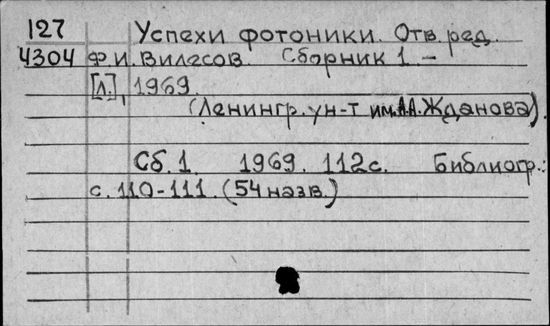 127 Успехи фотоники. Отв. ред.
4304 Ф.И. Вилесов. Сборник 1 –
[Л.], 1969.
(Ленингр. ун-т им. А.А. Жданова).
Сб. 1. 1969. 112 с. Библиогр.:
с. 110-111. (54 назв.)